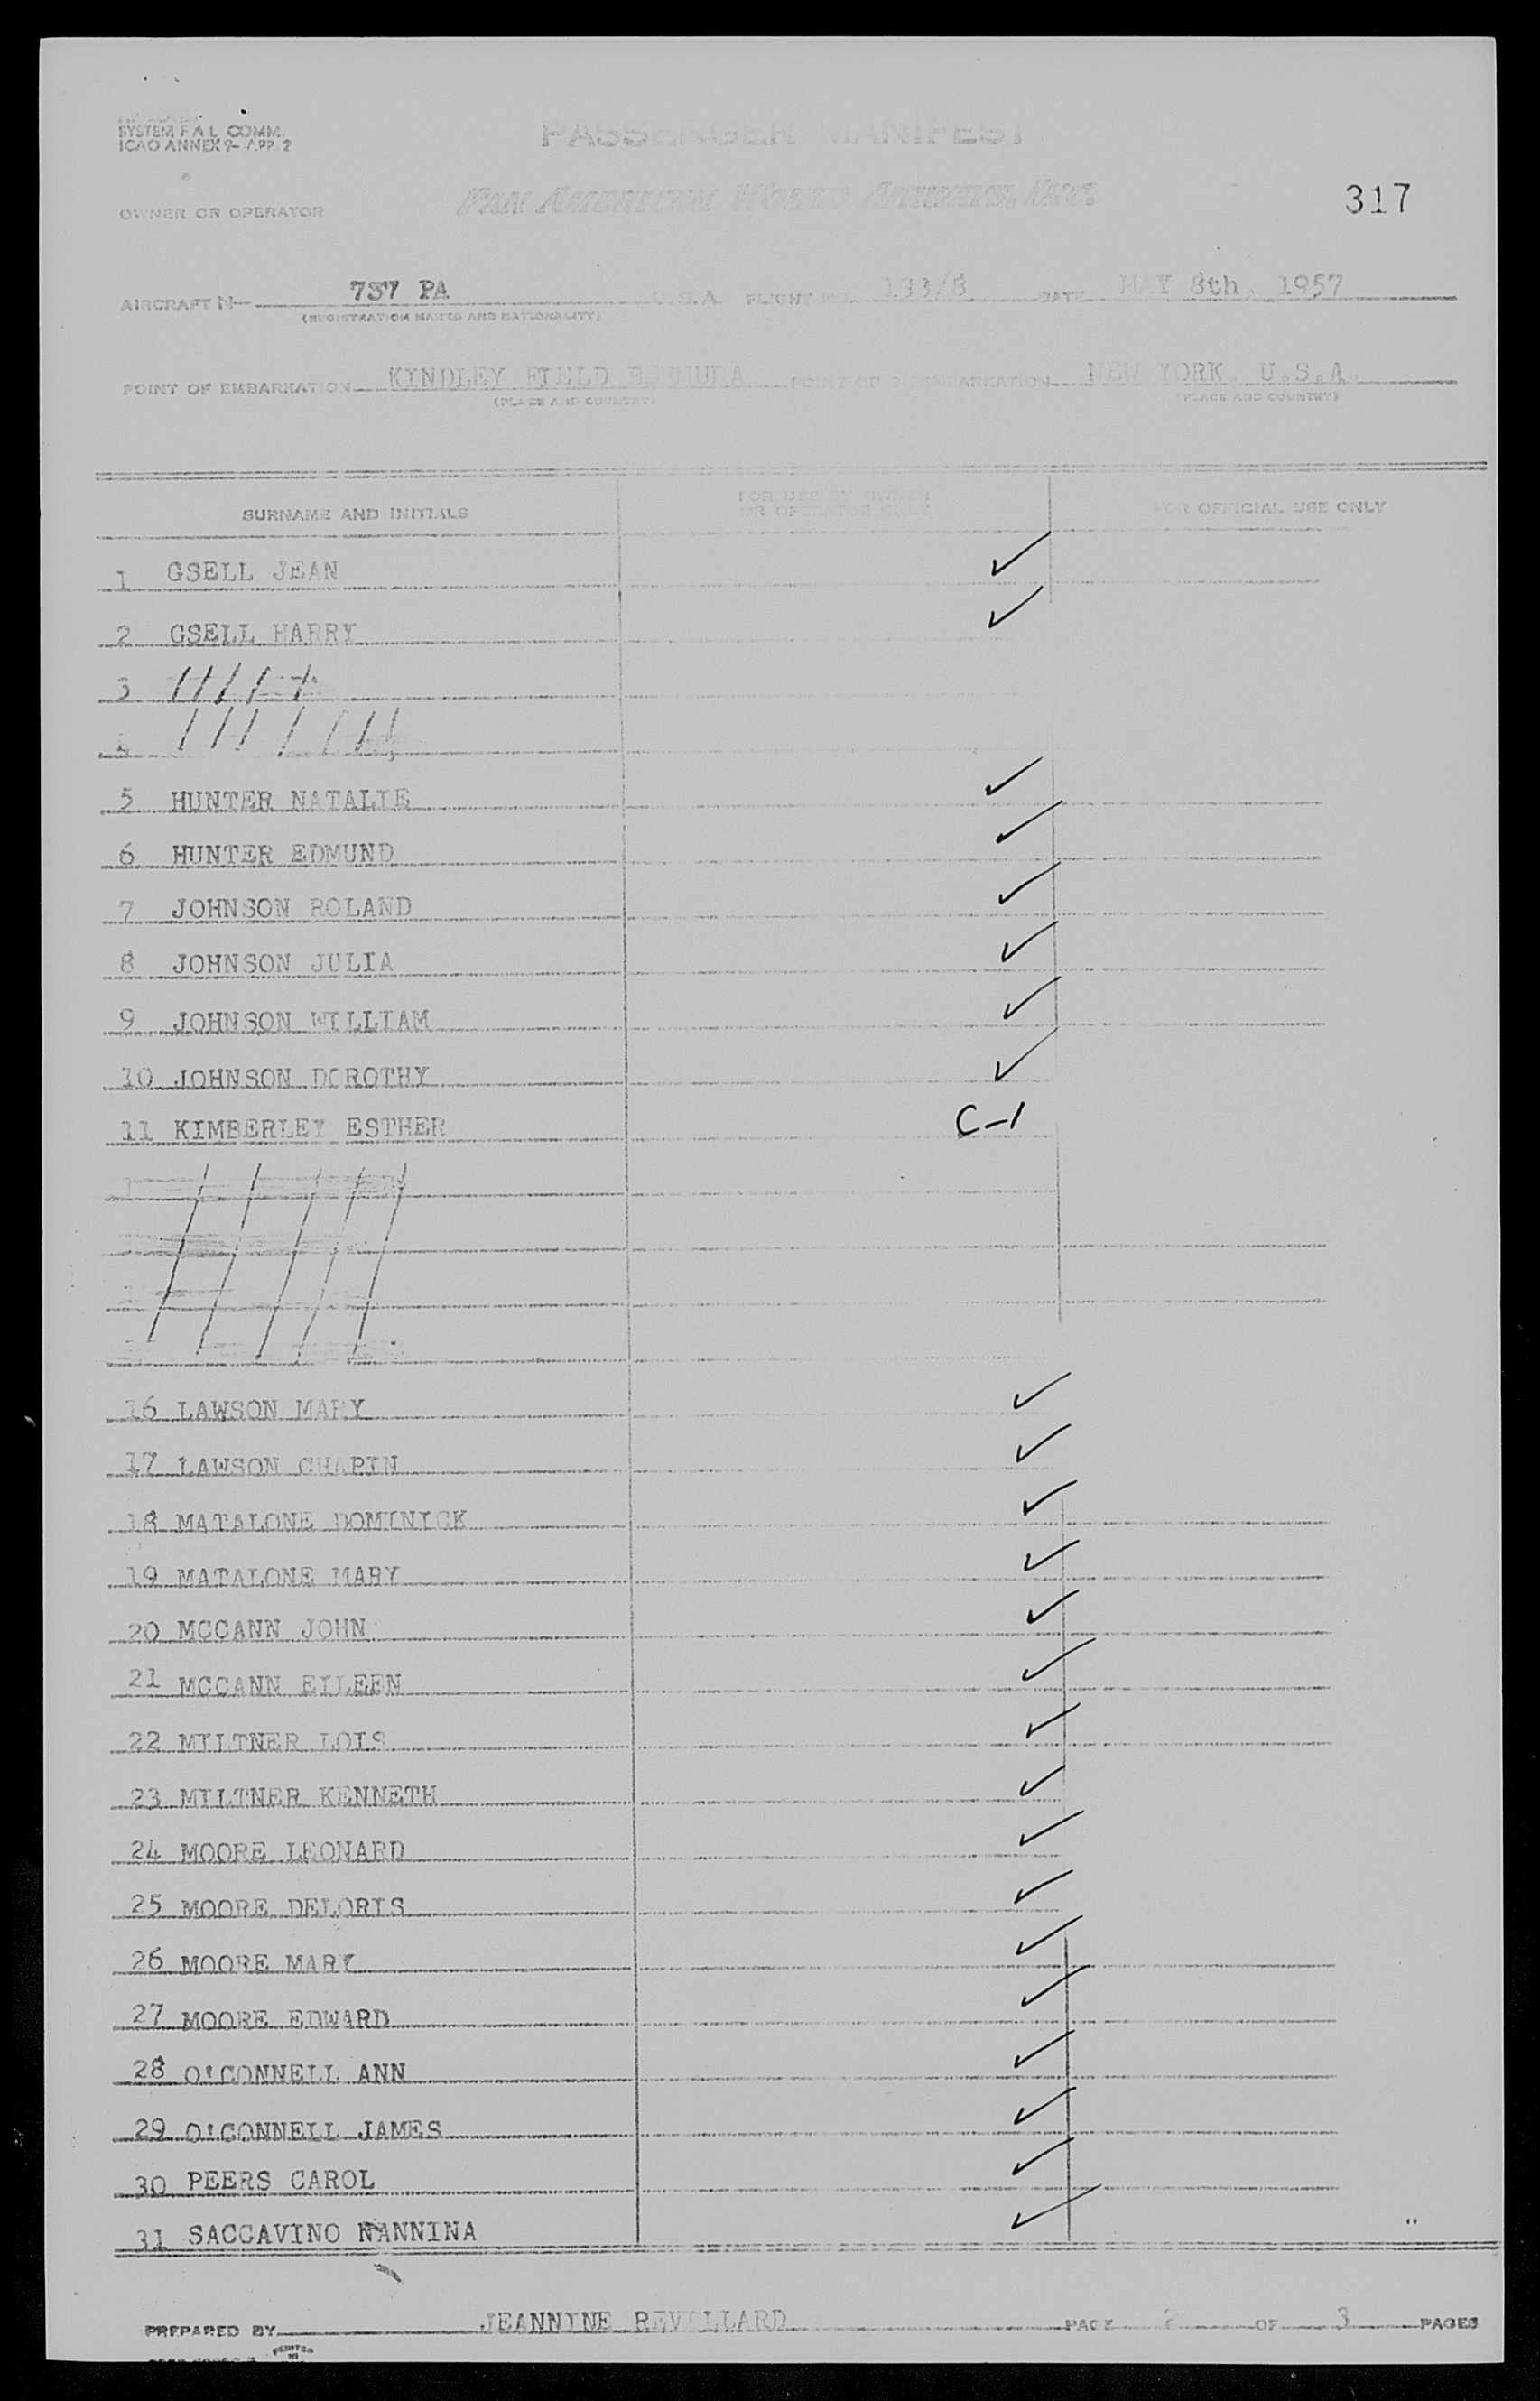 SYSTEM F A L COMM.
ICAO ANNEX 9- APP. 2
PASSENGER MANIFEST
OWNER OR OPERATOR
PAN AMERICAN WORLD AIRWAYS, INC.
317
AIRCRAFT N- 737 PA U.S.A. FLIGHT NO. 133/8 DATE MAY 8th, 1957
(REGISTRATION MARKS AND NATIONALITY)
POINT OF EMBARKATION KINDLEY FIELD BERMUDA POINT OF DISEMBARKATION NEW YORK U.S.A.
(PLACE AND COUNTRY) (PLACE AND COUNTRY)
SURNAME AND INITIALS FOR USE BY OWNER OR OPERATOR ONLY FOR OFFICIAL USE ONLY
1 GSELL JEAN ✓
2 GSELL HARRY ✓
3
4
5 HUNTER NATALIE ✓
6 HUNTER EDMUND ✓
7 JOHNSON ROLAND ✓
8 JOHNSON JULIA ✓
9 JOHNSON WILLIAM ✓
10 JOHNSON DOROTHY ✓
11 KIMBERLEY ESTHER C-1
16 LAWSON MARY ✓
17 LAWSON CHAPIN ✓
18 MATALONE DOMINICK ✓
19 MATALONE MARY ✓
20 MCCANN JOHN ✓
21 MCCANN EILEEN ✓
22 MILTNER LOIS ✓
23 MILTNER KENNETH ✓
24 MOORE LEONARD ✓
25 MOORE DELORIS ✓
26 MOORE MARY ✓
27 MOORE EDWARD ✓
28 O'CONNELL ANN ✓
29 O'CONNELL JAMES ✓
30 PEERS CAROL ✓
31 SACCAVINO NANNINA ✓
PREPARED BY JEANNINE REVILLARD PAGE 2 OF 3 PAGES